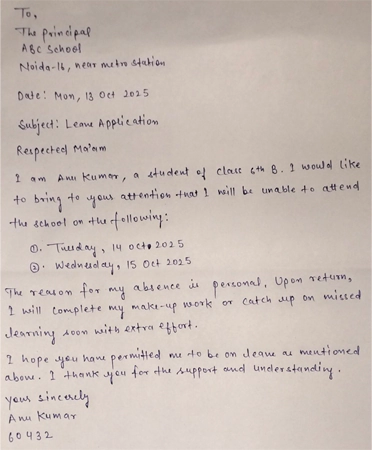 To,
The Principal
ABC School
Noida-16, near metro station
Date: Mon, 13 Oct 2025
Subject: Leave Application
Respected Ma'am
I am Anu Kumar, a student of class 6th B. I would like
to bring to your attention that I will be unable to attend
the school on the following:
①. Tuesday, 14 Oct 2025
②. Wednesday, 15 Oct 2025
The reason for my absence is personal, Upon return,
I will complete my make-up work or catch up on missed
learning soon with extra effort.
I hope you have permitted me to be on leave as mentioned
above. I thank you for the support and understanding.
Yours Sincerely
Anu Kumar
60432